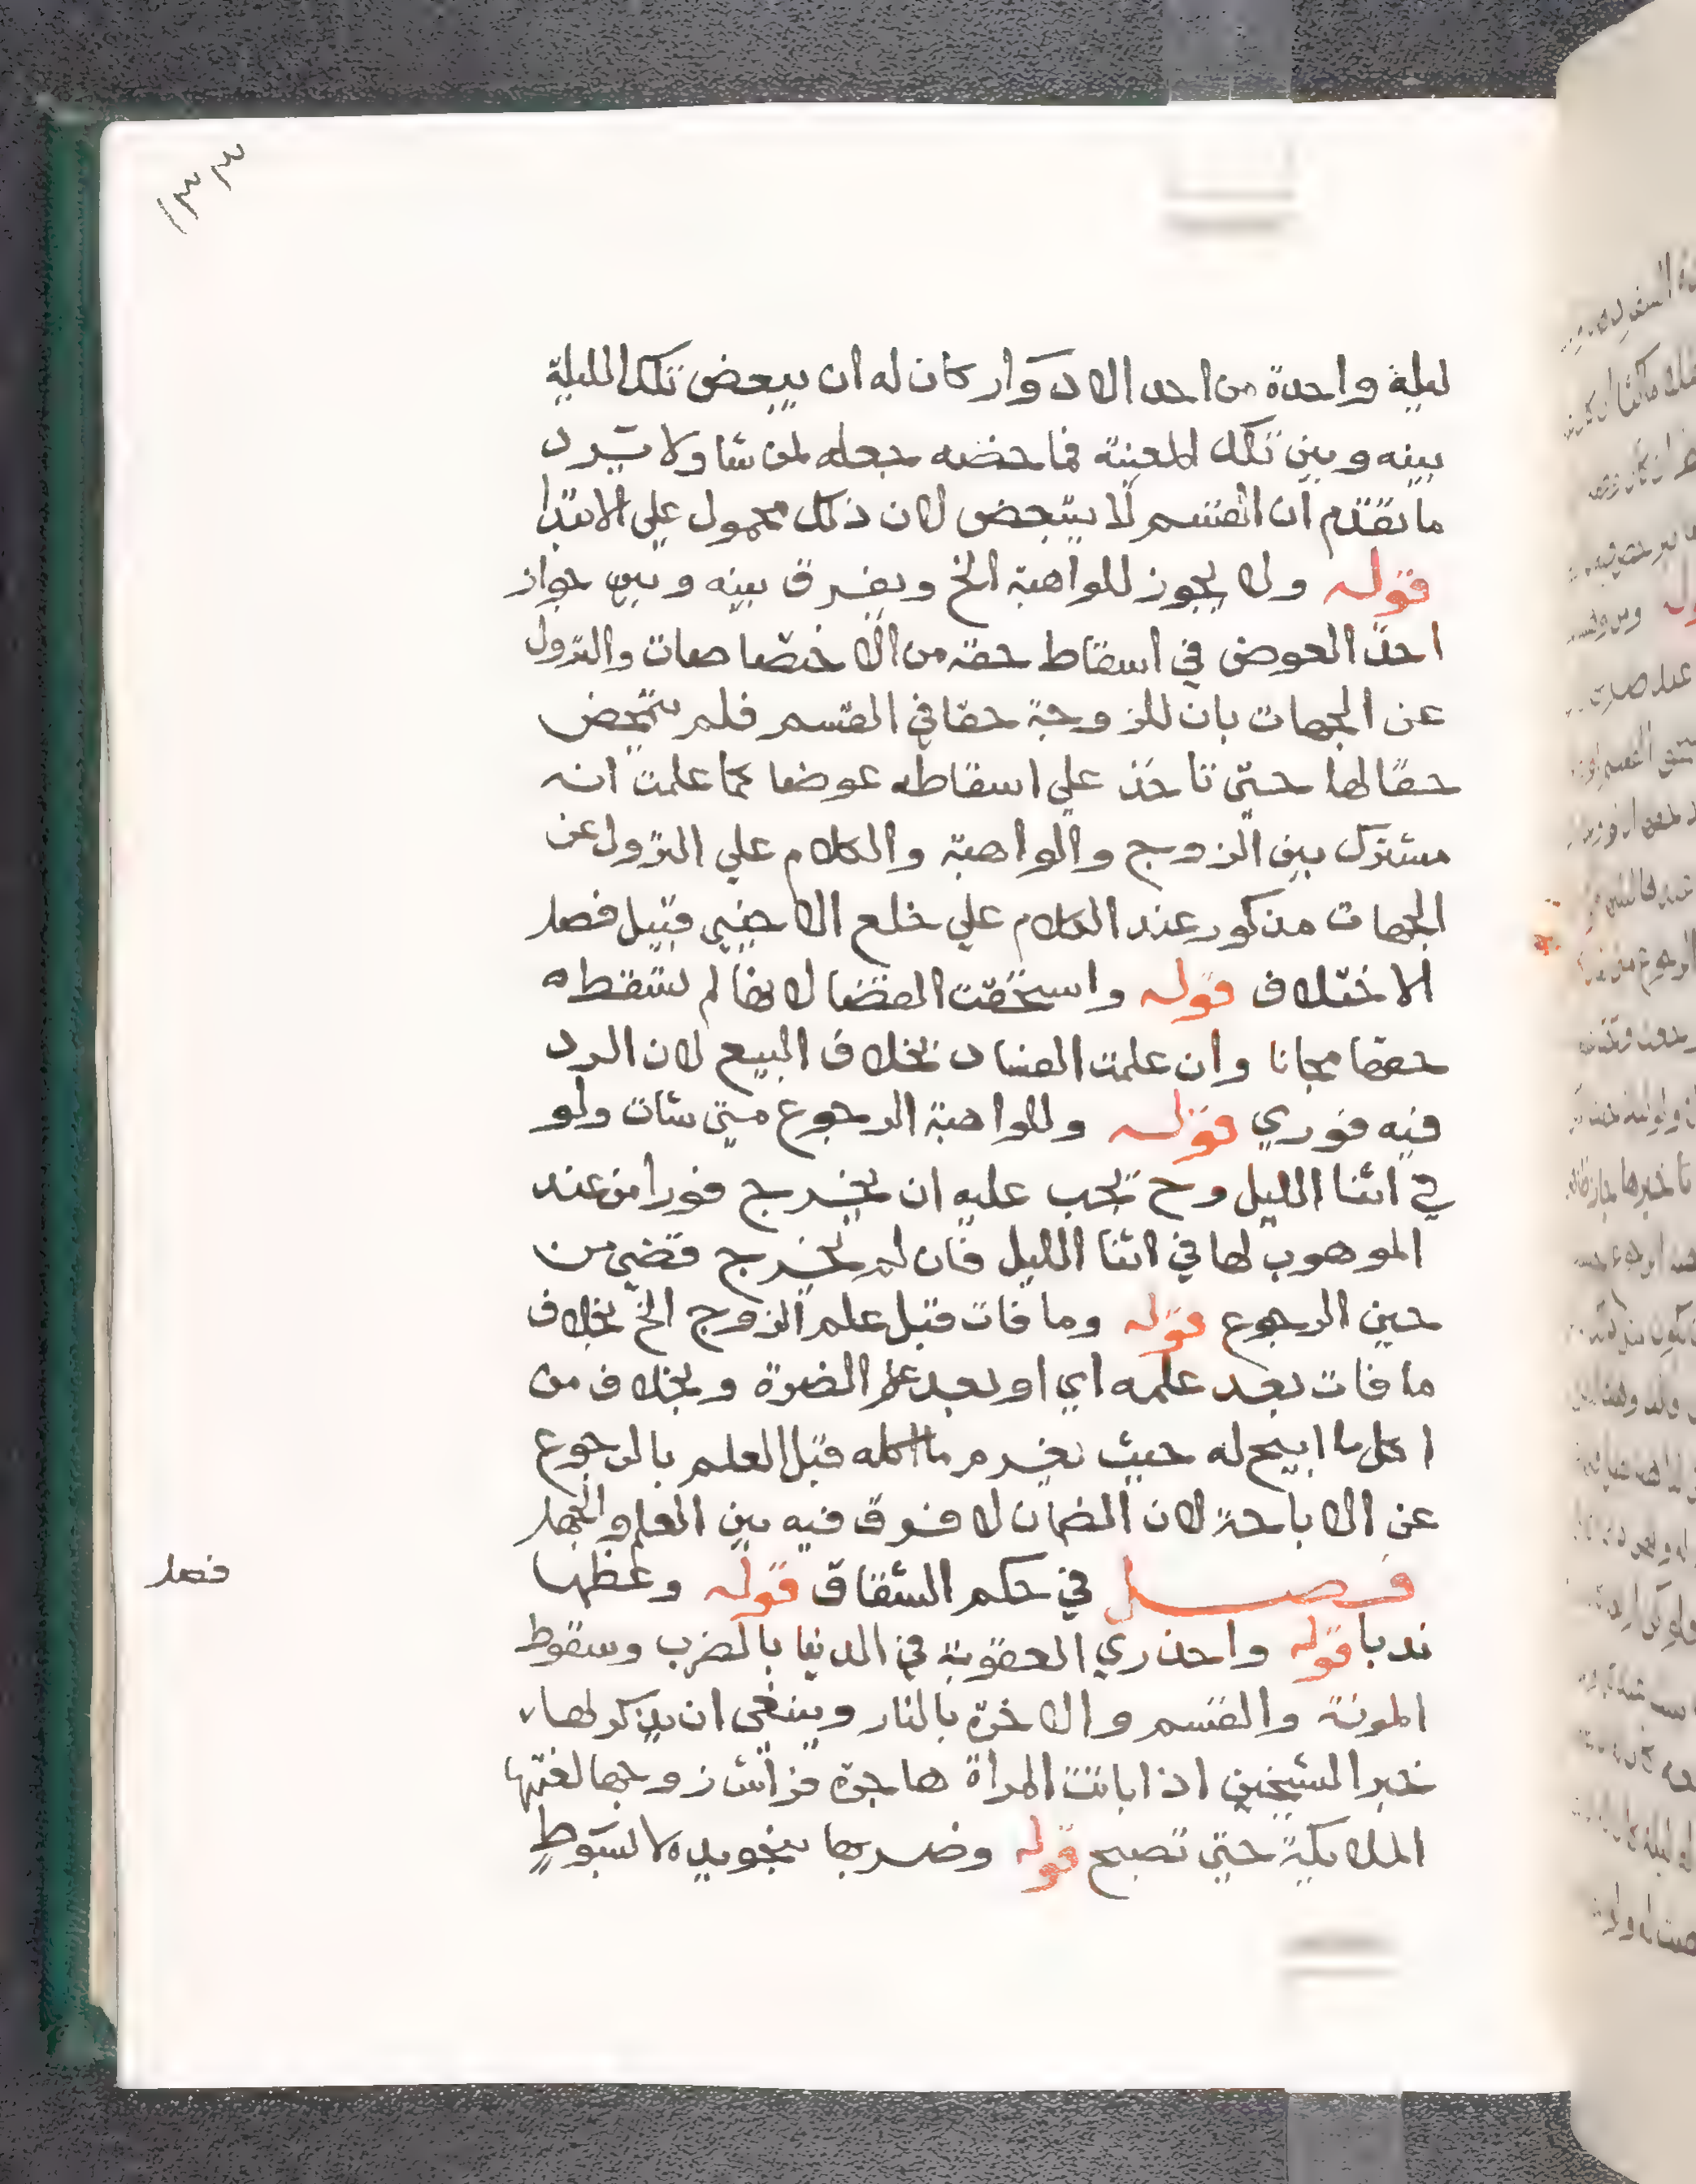 ١٣٣
ليلة واحدة من احد الادوار كان له ان يبعض تلك الليلة
بينه وبين تلك المعينة فما خصه جعله لمن شا ولا يرد
ما تقدم ان القسم لا يتبعض لان ذلك محمول علي الابتدا
قوله ولا يجوز للواهبة الخ ويفرق بينه وبين جواز
اخذ العوض في اسقاط حقه من الاختصاصات والنزول
عن الجهات بان للزوجة حقا في القسم فلم يتمحض
حقا لها حتي تاخذ علي اسقاطه عوضا كما علمت انه
مشترك بين الزوج والواهبة والكلام علي النزول عن
الجهات مذكور عند الكلام علي خلع الاجنبي قبيل فصل
الاختلاف قوله واستحقت القضا لانها لم تسقط
حقها مجانا وان علمت الفساد بخلاف البيع لان الرد
فيه فوري قوله وللواهبة الرجوع متي شات ولو
في اثنا الليل وح يجب عليه ان يخرج فورا من عند
الموهوب لها في اثنا الليل فان لم يخرج قضي من
حين الرجوع قوله وما فات قبل علم الزوج الخ بخلاف
ما فات بعد علمه اي او بعد علم الضرة وبخلاف من
اكل ما ابيح له حيث يغرم ما اكله قبل العلم بالرجوع
عن الاباحة لان الضمان لا فرق فيه بين العلم والجهل
فصل في حكم الشقاق قوله وعظها
فصل
ندبا قوله واحذري العقوبة في الدنيا بالضرب وسقوط
المونة والقسم والاخرة بالنار وينبغي ان يذكر لها
خبر الشيخين اذا باتت المراة هاجرة فراش زوجها لعنتها
الملايكة حتي تصبح قوله وضربها بنحو يده لا بسوط